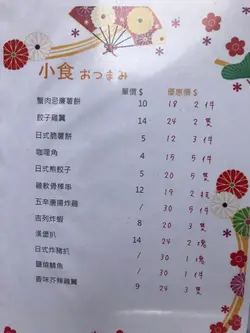 小食 おつまみ
單價$ 優惠價$
蟹肉忌廉薯餅 10 18 2件
餃子雞翼 14 24 2隻
日式脆薯餅 5 12 3件
咖喱角 4 15 5件
日式煎餃子 5 20 5隻
雞軟骨棒串 12 19 2枝
五辛唐揚炸雞 / 30 5件
吉列炸蝦 8 20 3隻
漢堡扒 14 24 2塊
日式炸豬扒 / 30 1塊
鹽燒鯖魚 / 30 1件
香味芥辣雞翼 9 24 3隻